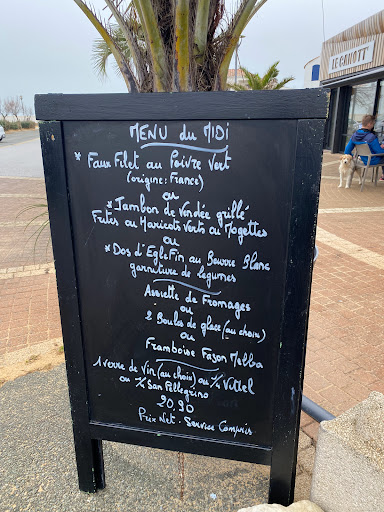 LE GANOTT'
MENU du MIDI
* Faux Filet au Poivre Vert
(origine: France)
ou
* Jambon de Vendée grillé
Frites ou Haricots Verts ou Mogettes
ou
* Dos d'EgleFin au Beurre Blanc
garniture de légumes
Assiette de Fromages
ou
2 Boules de glace (au choix)
ou
Framboise Façon Melba
1 verre de Vin (au choix) ou 1/4 Vittel
ou 1/2 San Pellegrino
20,90
Prix Net - Service Compris